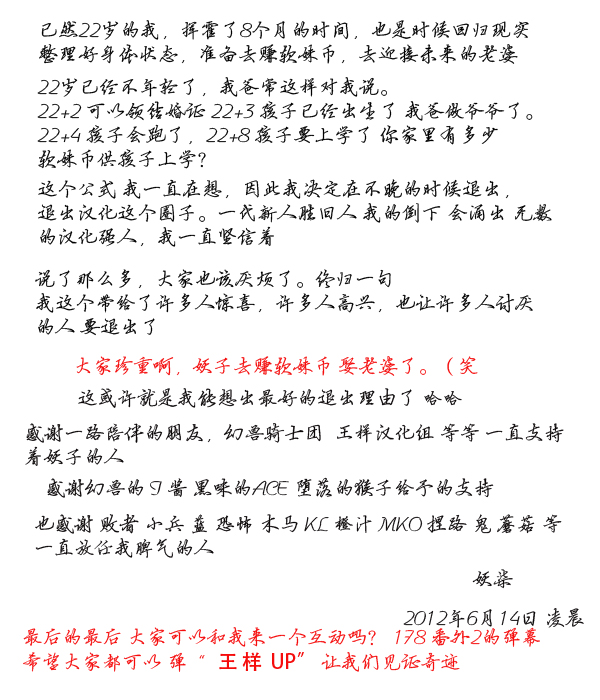 已然22岁的我，挥霍了8个月的时间，也是时候回归现实
整理好身体状态，准备去赚软妹币，去迎接未来的老婆
22岁已经不年轻了，我爸常这样对我说。
22+2 可以领结婚证 22+3 孩子已经出生了 我爸做爷爷了。
22+4 孩子会跑了，22+8 孩子要上学了 你家里有多少
软妹币供孩子上学？
这个公式 我一直在想，因此我决定在不晚的时候退出，
退出汉化这个圈子。一代新人胜旧人 我的倒下 会涌出 无数
的汉化强人，我一直坚信着
说了那么多，大家也该厌烦了。终归一句
我这个带给了许多人惊喜，许多人高兴，也让许多人讨厌
的人 要退出了
大家珍重啊，妖子去赚软妹币 娶老婆了。（笑
这或许就是我能想出最好的退出理由了 哈哈
感谢一路陪伴的朋友，幻兽骑士团 王样汉化组 等等 一直支持
着妖子的人
感谢幻兽的 G 酱 黑味的ACE 堕落的猴子给予的支持
也感谢 败者 小兵 蓝 恐怖 木马 KL 橙汁 MKO 捏路 鬼 蘑菇 等
一直放任我脾气的人
妖柒
2012年6月14日 凌晨
最后的最后 大家可以和我来一个互动吗？ 178 番外2的弹幕
希望大家都可以 弹 “ 王 样 UP” 让我们见证奇迹